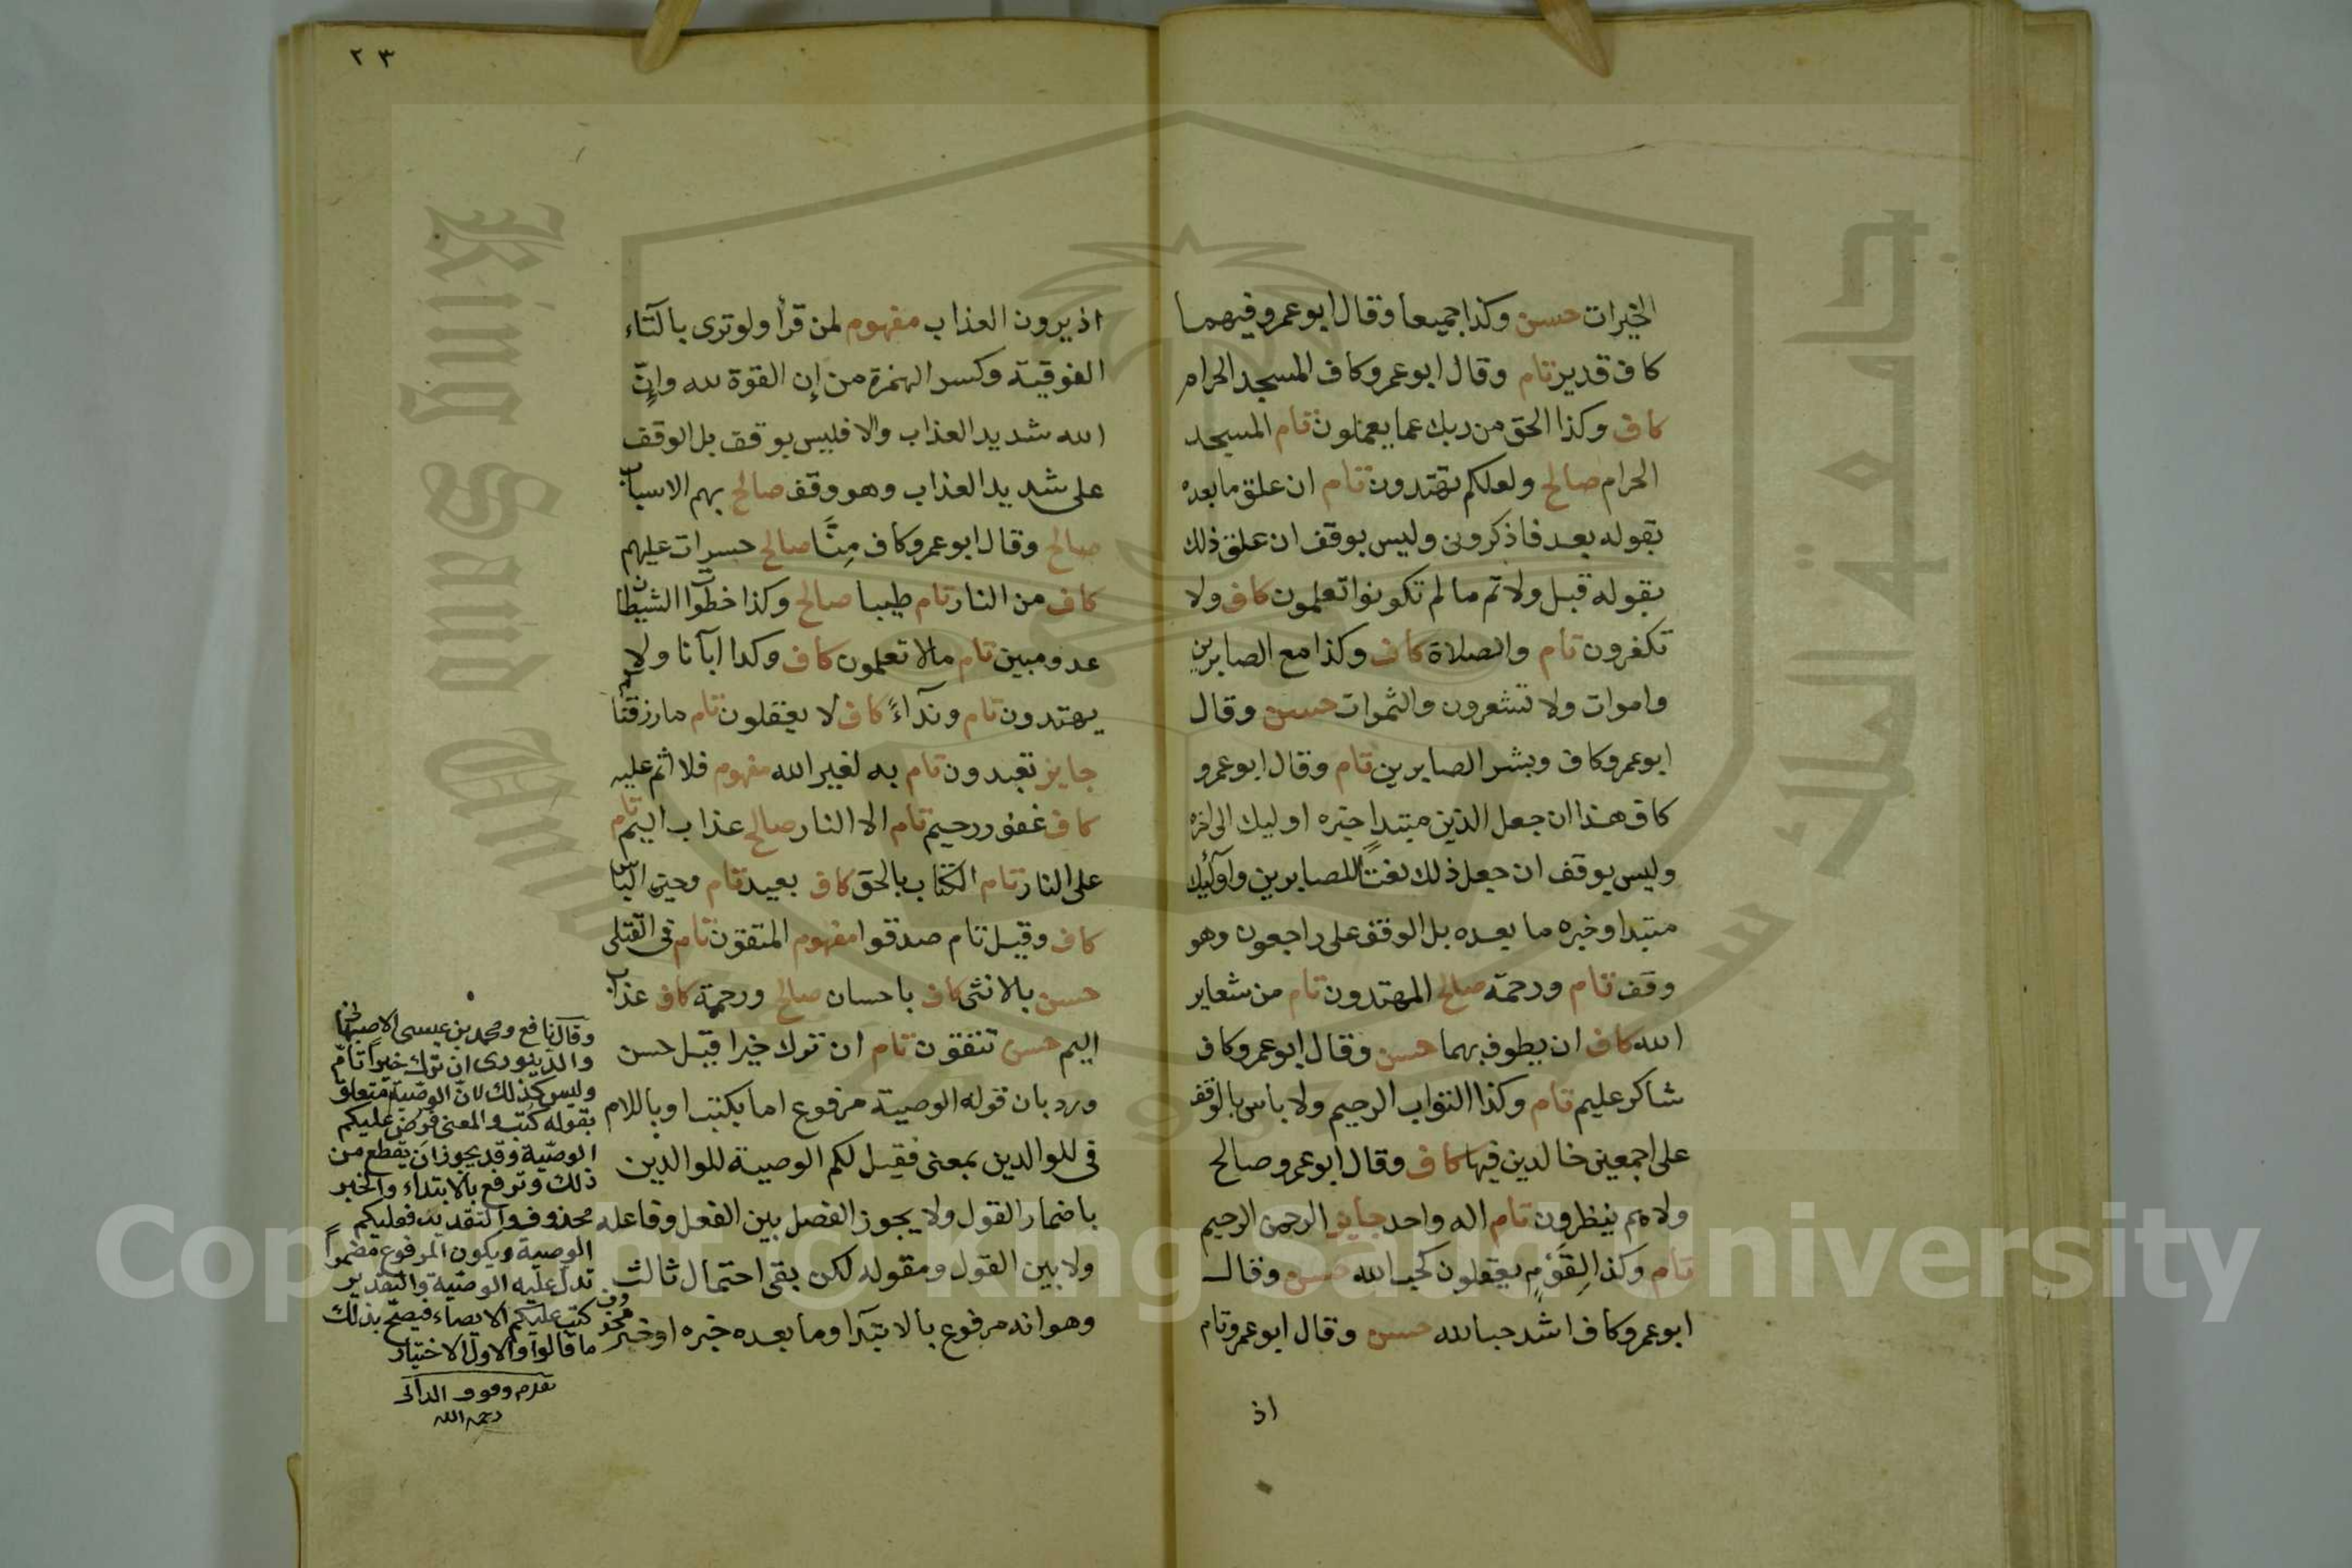 الخيرات حسن وكذا جميعا وقال ابو عمرو فيهما
كاف قدير تام وقال ابو عمرو كاف المسجد الحرام
كاف وكذا الحق من ربك عما يعملون تام المسجد
الحرام صالح ولعلكم تهتدون تام ان علق ما بعده
بقوله بعد فاذكروني وليس بوقف ان علق ذلك
بقوله قبل ولاتم ما لم تكونوا تعلمون كاف ولا
تكفرون تام والصلاة كاف وكذا مع الصابرين
واموات ولا تشعرون والثمرات حسن وقال
ابو عمرو كاف وبشر الصابرين تام وقال ابو عمرو
كاف هذا ان جعل الذين مبتدا خبره اوليك الى اخره
وليس بوقف ان جعل ذلك نعتًا للصابرين واولئك
مبتدا وخبره ما بعده بل الوقف على راجعون وهو
وقف تام ورحمة صالح المهتدون تام من شعاير
الله كاف ان يطوف بهما حسن وقال ابو عمرو كاف
شاكر عليم تام وكذا التواب الرحيم ولا باس بالوقف
على اجمعين خالدين فيها كاف وقال ابو عمرو صالح
ولا هم ينظرون تام اله واحد جايز الرحمن الرحيم
تام وكذا لِقَوْمٍ يعقلون كحب الله حسن وقال
ابو عمرو كاف اشد حبا لله حسن وقال ابو عمرو تام
اذ
٢٣
اذ يرون العذاب مفهوم لمن قرأ ولو ترى بالتاء
الفوقية وكسر الهمزة من إن القوة لله وإنّ
الله شديد العذاب والا فليس بوقف بل الوقف
على شديد العذاب وهو وقف صالح بهم الاسباب
صالح وقال ابو عمرو كاف مِنَّا صالح حسرات عليهم
كاف من النار تام طيبا صالح وكذا خطوات الشيطان
عدو مبين تام مالا تعلمون كاف وكذا اباءنا ولا
يهتدون تام ونداءً كاف لا يعقلون تام ما رزقناكم
جايز تعبدون تام به لغير الله مفهوم فلا اثم عليه
كاف غفور رحيم تام الا النار صالح عذاب اليم تام
على النار تام الكتاب بالحق كاف بعيد تام وحين الباس
كاف وقيل تام صدقوا مفهوم المتقون تام في القتلى
حسن بالانثى كاف باحسان صالح ورحمة كاف عذاب
اليم حسن تتقون تام ان ترك خيرا قيل حسن
ورد بان قوله الوصية مرفوع اما بكتب او باللام
في للوالدين بمعنى فقيل لكم الوصية للوالدين
باضمار القول ولا يجوز الفصل بين الفعل وفاعله
ولا بين القول ومقوله لكن بقى احتمال ثالث
وهو انه مرفوع بالابتدا وما بعده خبره او خبره محذوف
وقال نافع ومحمد بن عيسى الاصبهاني
والدينوري ان ترك خيراً تامّ
وليس كذلك لانّ الوصيّة متعلق
بقوله كُتب والمعنى فُرِض عليكم
الوصيّة وقد يجوز ان يقطع من
ذلك وترفع بالابتداء والخبر
محذوف والتقدير فعليكم
الوصية ويكون المرفوع مضمراً
تدلّ عليه الوصيّة والتقدير
كتب عليكم الايصاء فيصحّ بذلك
ما قالوا والاول الاختيار
رحمه الله
King Saud University
جامعة الملك سعود
1957
Copyright © King Saud University